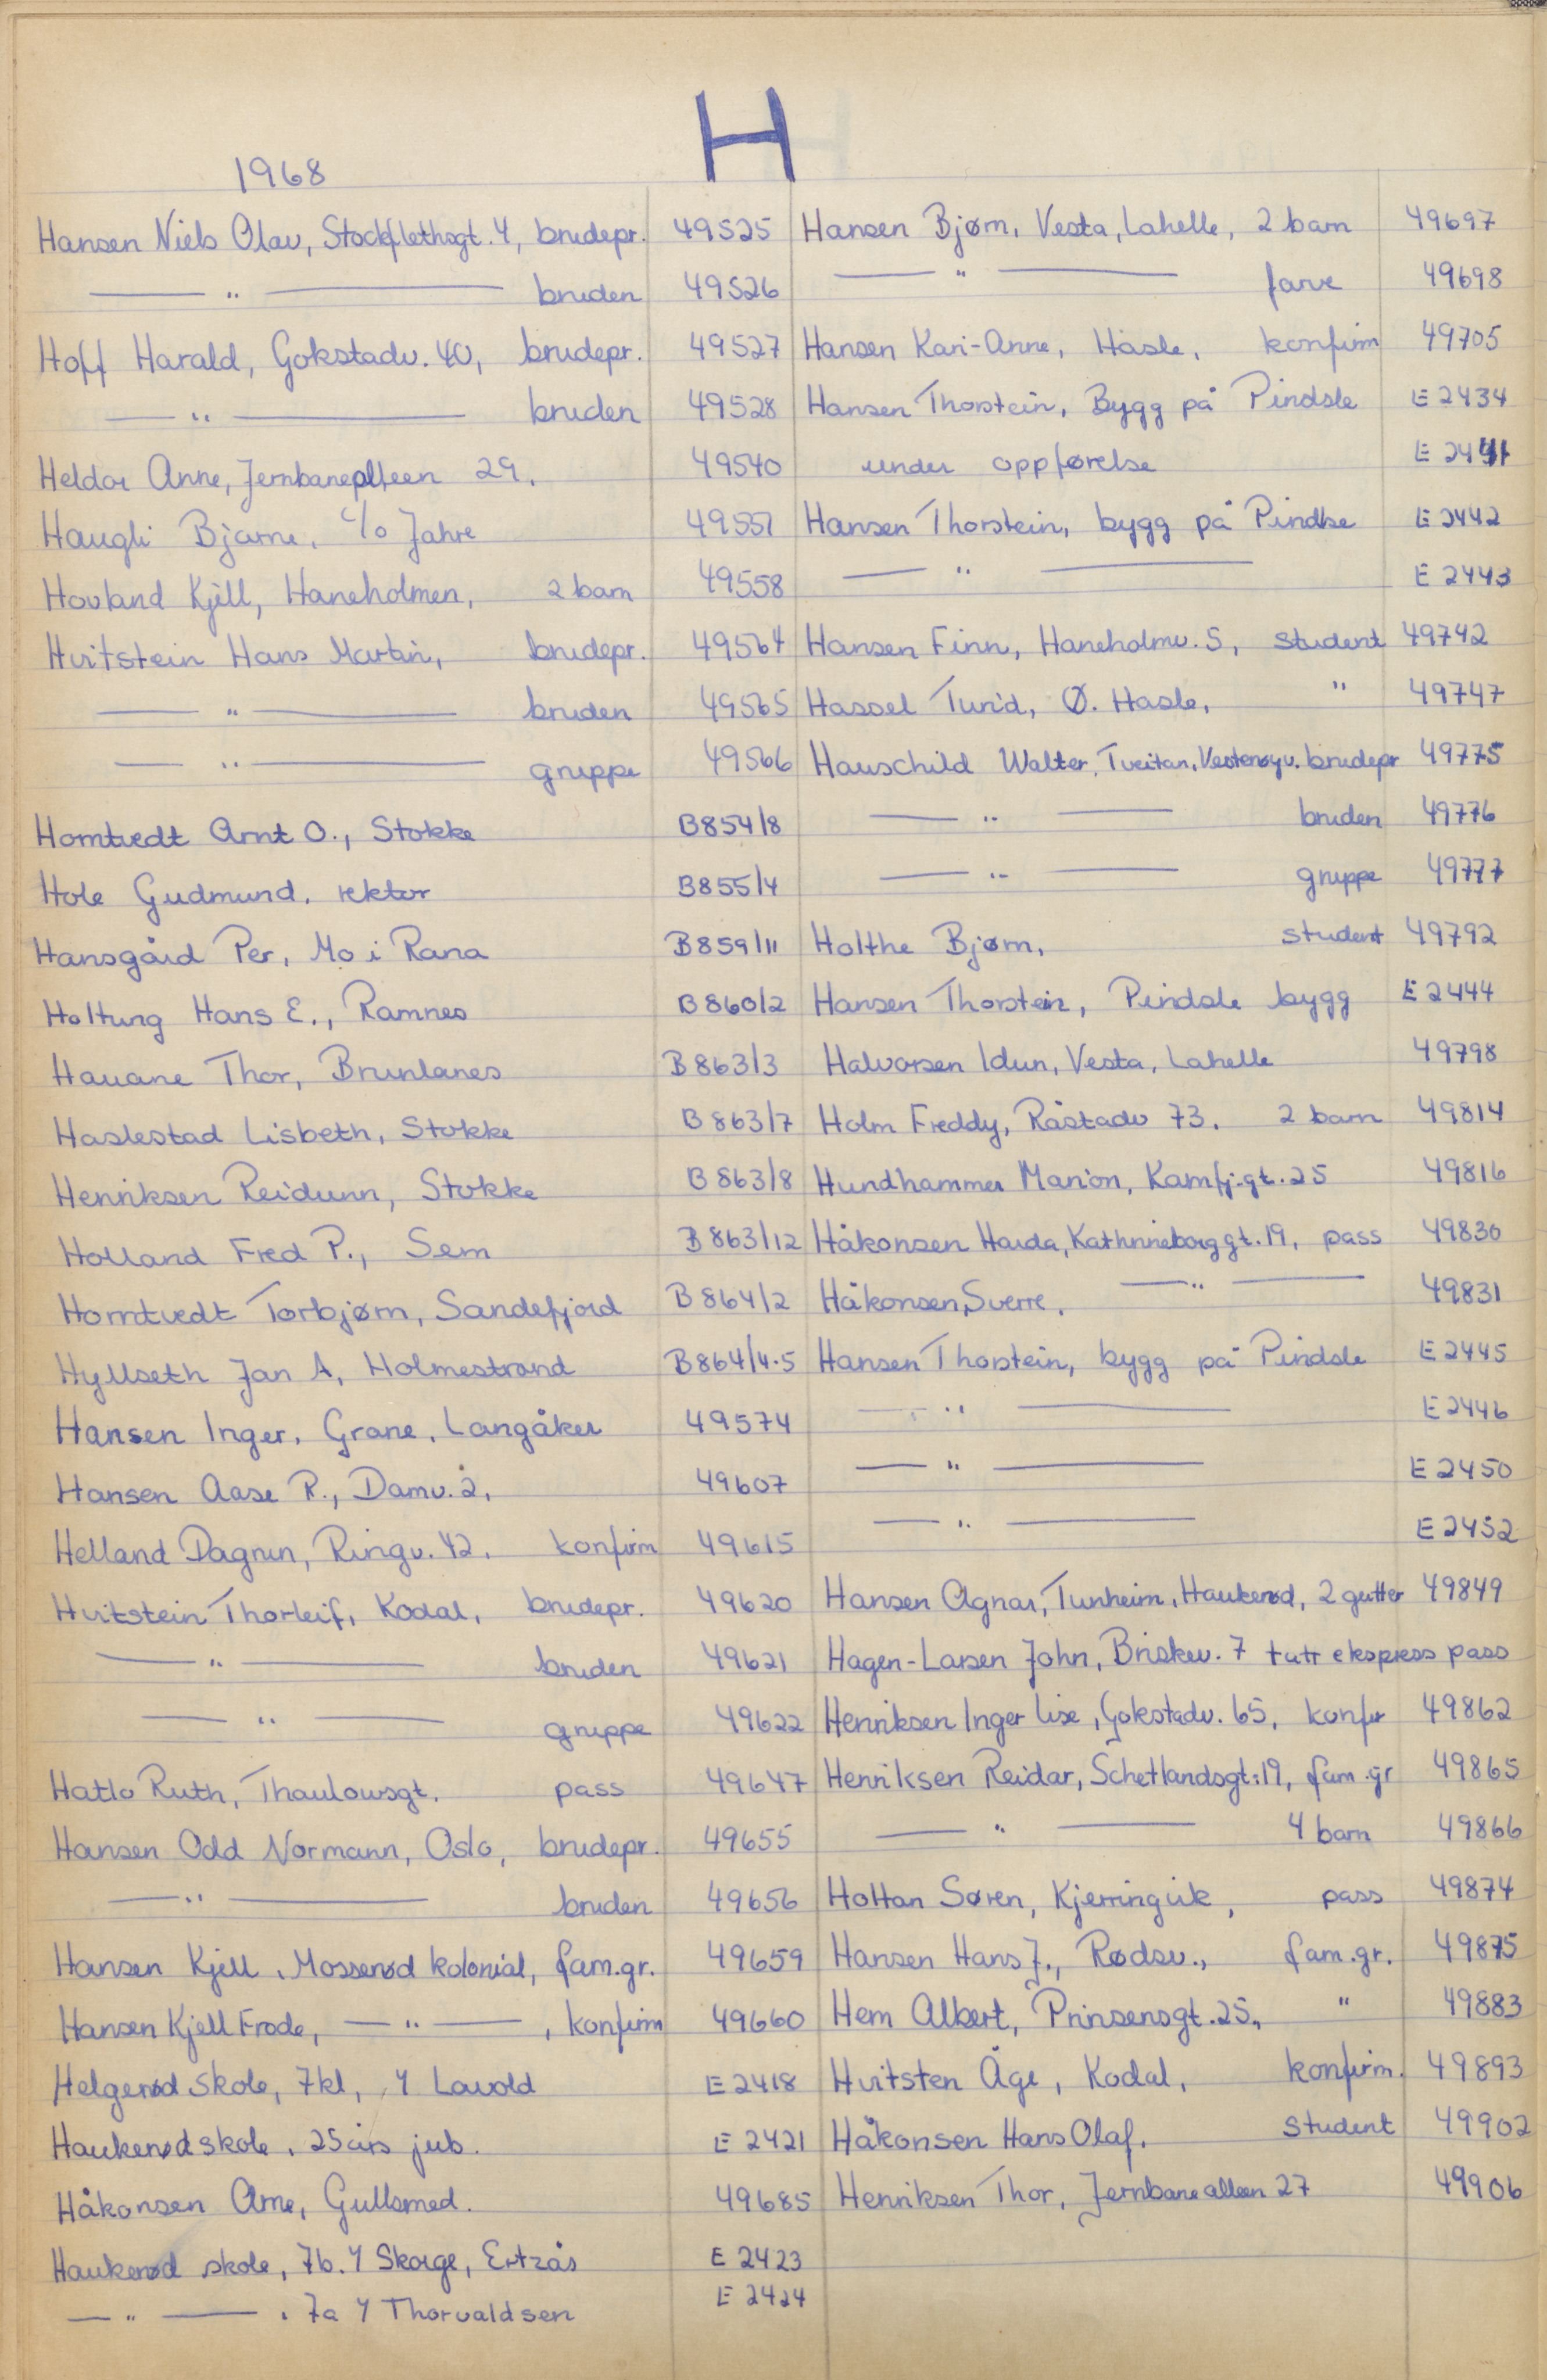 H
1968
Hansen Niels Olav, Stockflethsgt. 4, brudepr. 49525
— " — bruden 49526
Hoff Harald, Gokstadv. 40, brudepr. 49527
— " — bruden 49528
Heldor Anne, Jernbanealleen 29. 49540
Haugli Bjarne, c/o Jahre 49557
Hovland Kjell, Haneholmen, 2 barn 49558
Hvitstein Hans Martin, brudepr. 49564
— " — bruden 49565
— " — gruppe 49566
Homtvedt Arnt O., Stokke B854/8
Hole Gudmund, rektor B855/4
Hansgård Per, Mo i Rana B859/11
Holtung Hans E., Ramnes B860/2
Hauane Thor, Brunlanes B863/3
Haslestad Lisbeth, Stokke B863/7
Henriksen Reidunn, Stokke B863/8
Holland Fred P., Sem B863/12
Homtvedt Torbjørn, Sandefjord B864/2
Hyllseth Jan A, Holmestrand B864/4.5
Hansen Inger, Grane, Langåker 49574
Hansen Aase R., Damv. 2. 49607
Helland Dagrun, Ringv. 42. konfirm 49615
Hvitstein Thorleif, Kodal, brudepr. 49620
— " — bruden 49621
— " — gruppe 49622
Hatlo Ruth, Thaulowsgt. pass 49647
Hansen Odd Normann, Oslo, brudepr. 49655
— " — bruden 49656
Hansen Kjell, Mosserød kolonial, fam.gr. 49659
Hansen Kjell Frode, — " —, konfirm 49660
Helgerød Skole, 7kl, Y Lavold E 2418
Haukerød skole, 25 års jub. E 2421
Håkonsen Arne, Gullsmed. 49685
Haukerød skole, 7b. Y Skorge, Ertzås E 2423
— " — . 7a Y Thorvaldsen E 2424
Hansen Bjørn, Vesta, Lahelle, 2 barn 49697
— " — farve 49698
Hansen Kari-Anne, Hasle, konfirm 49705
Hansen Thorstein, Bygg på Pindsle E 2434
under oppførelse E 2441
Hansen Thorstein, bygg på Pindlse E 2442
— " — E 2443
Hansen Finn, Haneholmv. 5, student 49742
Hassel Turid, Ø. Hasle, " 49747
Hauschild Walter, Tveitan, Vestenøyv. brudepr 49775
— " — bruden 49776
— " — gruppe 49777
Holthe Bjørn, student 49792
Hansen Thorstein, Pindsle bygg E 2444
Halvorsen Idun, Vesta, Lahelle 49798
Holm Freddy, Råstadv 73. 2 barn 49814
Hundhammer Marion, Kamfj.gt. 25 49816
Håkonsen Harda, Kathrineborggt. 19, pass 49830
Håkonsen, Sverre, — " — 49831
Hansen Thorstein, bygg på Pindsle E 2445
— " — E 2446
— " — E 2450
— " — E 2452
Hansen Agnar, Tunheim, Haukerød, 2 gutter 49849
Hagen-Larsen John, Briskev. 7 tatt ekspress pass
Henriksen Inger Lise, Gokstadv. 65, konfir 49862
Henriksen Reidar, Schetlandsgt: 19, fam.gr 49865
— " — 4 barn 49866
Holtan Søren, Kjerringvik, pass 49874
Hansen Hans J., Rødsv., fam.gr. 49875
Hem Albert, Prinsensgt. 25., " 49883
Hvitsten Åge, Kodal, konfirm. 49893
Håkonsen Hans Olaf. Student 49902
Henriksen Thor, Jernbanealleen 27 49906